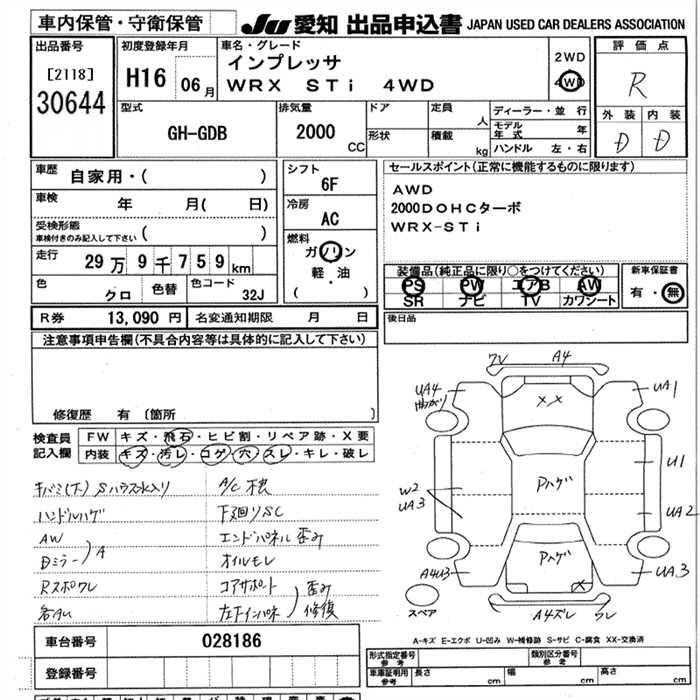 車内保管・守衛保管
JU 愛知 出品申込書 JAPAN USED CAR DEALERS ASSOCIATION
出品番号
[2118]
30644
初度登録年月
H16 06月
車名・グレード
インプレッサ
WRX STi 4WD
2WD
4WD
評価点
R
外装 内装
D D
型式
GH-GDB
排気量
2000 CC
ドア
形状
定員 人
積載 kg
ディーラー・並行
モデル年式 年
ハンドル 左・右
車歴 自家用・( )
車検 年 月( 日)
受検形態
車検付きのみ記入して下さい ( )
走行 29万9千759km
色 クロ 色替 色コード 32J
シフト
6F
冷房
AC
燃料
ガソリン
軽・油
( )
セールスポイント(正常に機能するものに限ります)
AWD
2000DOHCターボ
WRX-STi
装備品(純正品に限り○をつけてください)
PS PW エアB AW
SR ナビ TV カワシート
新車保証書
有・無
R券 13,090円 名変通知期限 月 日
後日品
注意事項申告欄(不具合内容等は具体的に記入して下さい)
修復歴 有 〔箇所 〕
検査員記入欄
FW キズ・飛石・ヒビ割・リペア跡・X要
内装 キズ・汚レ・コゲ・穴・スレ・キレ・破レ
ハンドルハゲ
AW
Dミラー A
A/C
下廻りSC
エンドパネル歪み
オイルモレ
コアサポート 歪み
修復
ワレ A4
UA4
UA1
XX
U1
Pハゲ
W2
UA3
UA2
Pハゲ
A4U3
UA3
X
スペア
A4ズレ ワレ
A-キズ E-エクボ U-凹み W-補修跡 S-サビ C-腐食 XX-交換済
車台番号 028186
登録番号
形式指定番号
参考
類別区分番号
参考
車庫証明用
参考
長さ cm 幅 cm 高さ cm